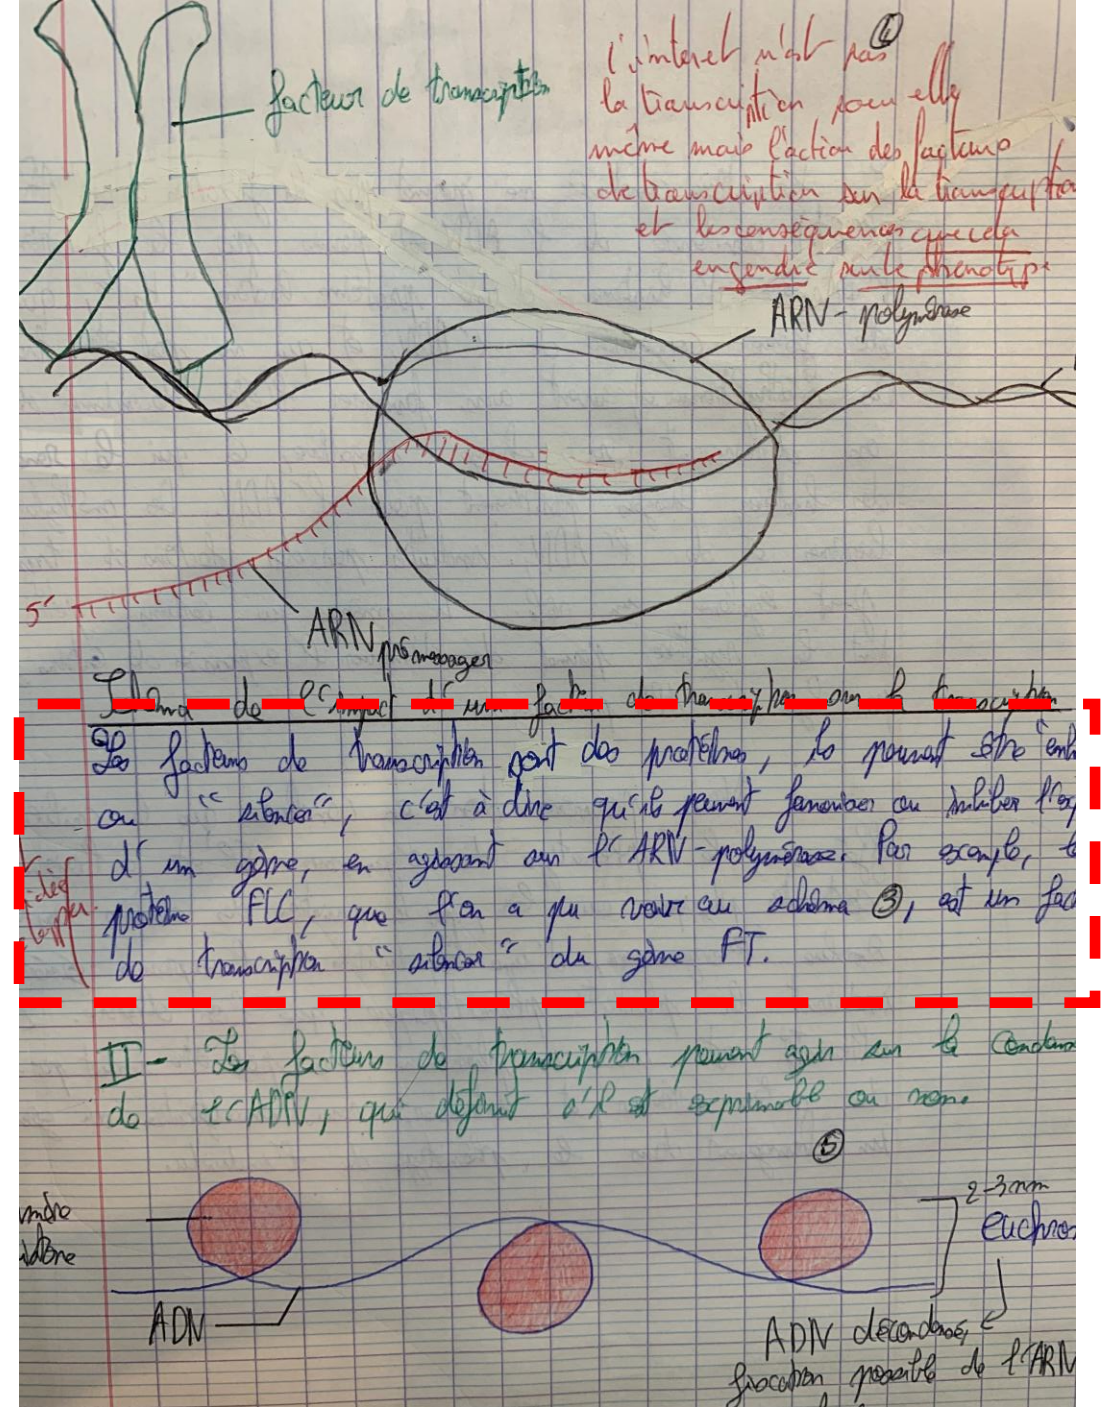 ④
l'interet n'est pas
la transcription pour elle
même mais l'action des facteurs
de transcription sur la transcription
et les conséquences que cela
engendre sur le phenotype
facteur de transcription
ARN-polymérase
5'
ARN prémessager
Schéma de l'impact d'un facteur de transcription sur la transcription
Les facteurs de transcription sont des protéines, ils peuvent être "enh
ou "silencer", c'est à dire qu'ils peuvent favoriser ou inhiber l'exp
d'un gène, en agissant sur l'ARN-polymérase. Par exemple, la
protéine FLC, que l'on a pu voir au schéma ③, est un fac
de transcription "silencer" du gène FT.
II- Les facteurs de transcription peuvent agir sur la condensa
de l'ADN, qui définit s'il est exprimable ou non.
⑤
2-3nm
euchro
ADN
ADN décondensé,
fixation possible de l'ARN